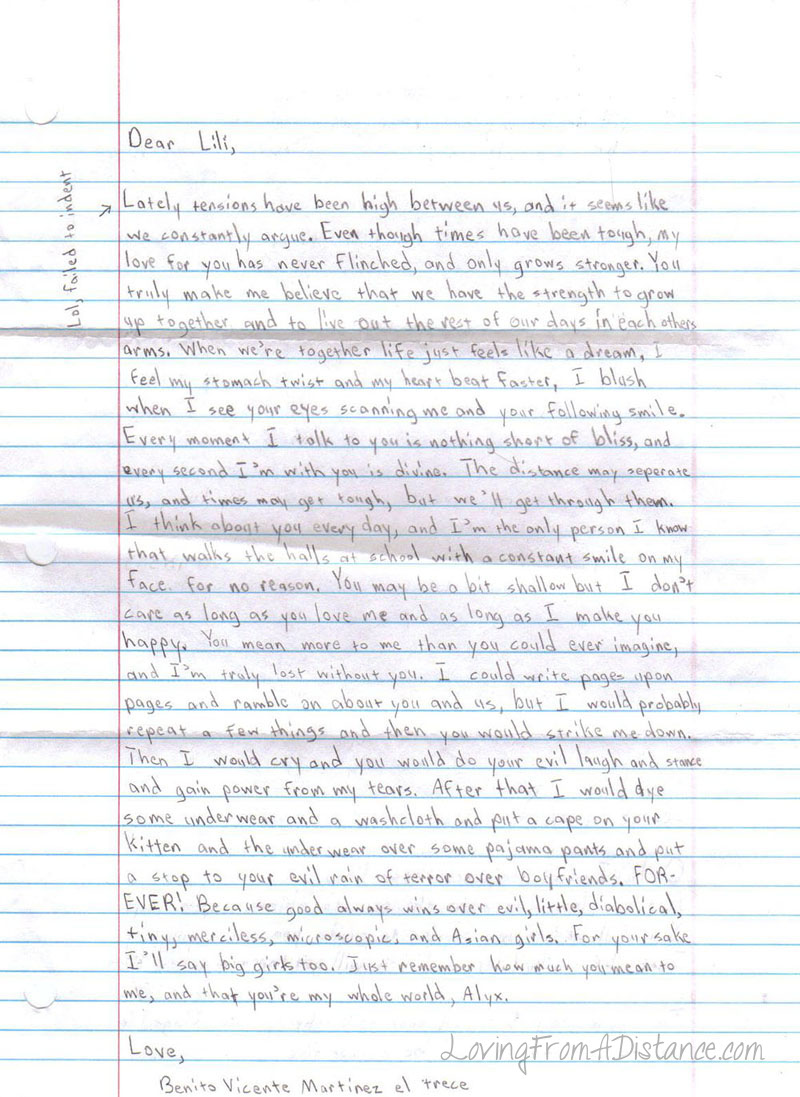 Dear Lili,
Lol, failed to indent
Lately tensions have been high between us, and it seems like
we constantly argue. Even though times have been tough, my
love for you has never flinched, and only grows stronger. You
truly make me believe that we have the strength to grow
up together and to live out the rest of our days in each others
arms. When we're together life just feels like a dream, I
feel my stomach twist and my heart beat faster, I blush
when I see your eyes scanning me and your following smile.
Every moment I talk to you is nothing short of bliss, and
every second I'm with you is divine. The distance may seperate
us, and times may get tough, but we'll get through them.
I think about you every day, and I'm the only person I know
that walks the halls at school with a constant smile on my
face for no reason. You may be a bit shallow but I don't
care as long as you love me and as long as I make you
happy. You mean more to me than you could ever imagine,
and I'm truly lost without you. I could write pages upon
pages and ramble on about you and us, but I would probably
repeat a few things and then you would strike me down.
Then I would cry and you would do your evil laugh and stance
and gain power from my tears. After that I would dye
some underwear and a washcloth and put a cape on your
kitten and the underwear over some pajama pants and put
a stop to your evil rain of terror over boyfriends. FOR-
EVER! Because good always wins over evil, little, diabolical,
tiny, merciless, microscopic, and Asian girls. For your sake
I'll say big girls too. Just remember how much you mean to
me, and that you're my whole world, Alyx.
Love,
LovingFromADistance.com
Benito Vicente Martinez el trece